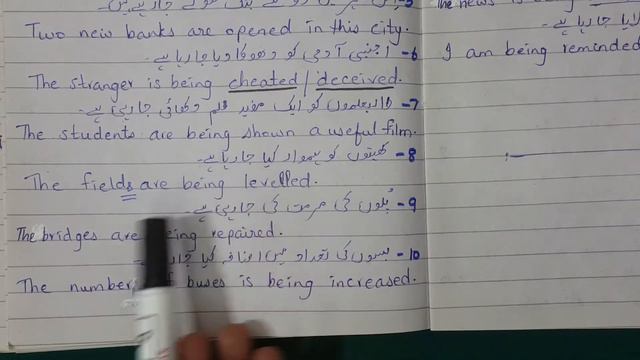 Two new banks are opened in this city.
6- اجنبی آدمی کو دھوکا دیا جا رہا ہے۔
The stranger is being cheated / deceived.
7- طالبعلموں کو ایک مفید فلم دکھائی جا رہی ہے۔
The students are being shown a useful film.
8- کھیتوں کو ہموار کیا جا رہا ہے۔
The fields are being levelled.
9- پُلوں کی مرمت کی جا رہی ہے۔
The bridges are being repaired.
10- بسوں کی تعداد میں اضافہ کیا جا
The number of buses is being increased.
The news is
لایا جا رہا ہے۔
I am being reminded